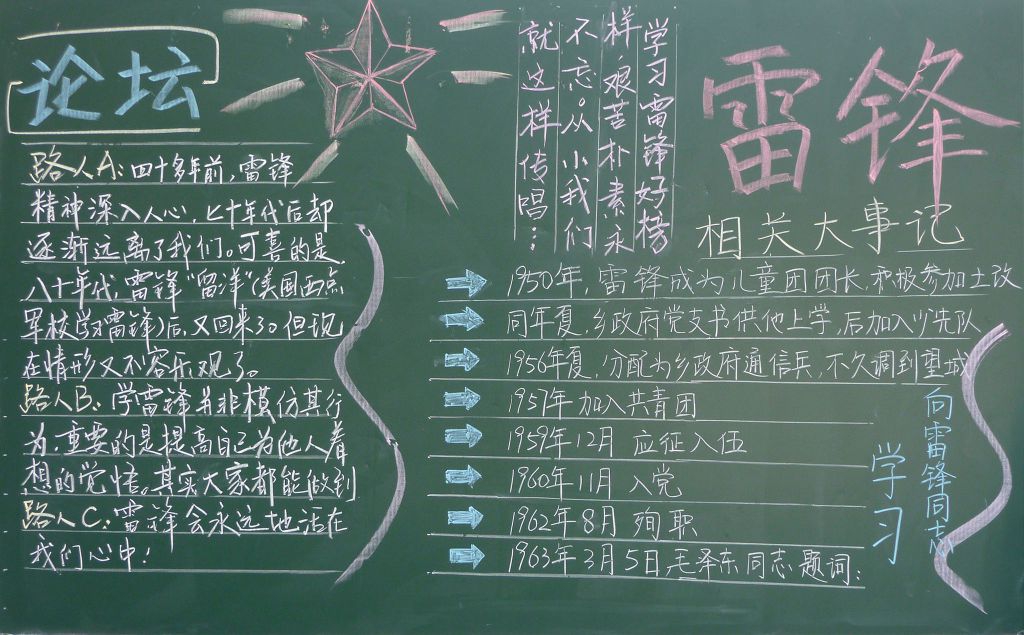 论坛
路人A:四十多年前,雷锋
精神深入人心,七十年代后却
逐渐远离了我们。可喜的是,
八十年代,雷锋“留洋”(美国西点
军校学习雷锋)后,又回来了。但现
在情形又不容乐观了。
路人B:学雷锋并非模仿其行
为,重要的是提高自己为他人着
想的觉悟。其实大家都能做到
路人C:雷锋会永远地活在
我们心中!
学习雷锋好榜
样艰苦朴素永
不忘。从小我们
就这样传唱…
雷锋
相关大事记
1950年,雷锋成为儿童团团长,积极参加土改
同年夏,乡政府党支书供他上学,后加入少先队
1956年夏,分配为乡政府通信兵,不久调到望城
1957年加入共青团
1959年12月 应征入伍
1960年11月 入党
1962年8月 殉职
1963年3月5日毛泽东同志题词:
向雷锋同志
学习